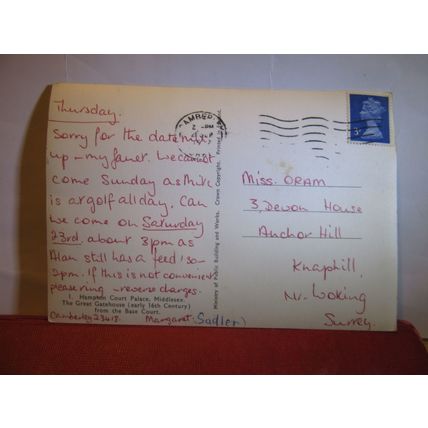 Thursday.
Sorry for the date mix
up – my fault. We cannot
come Sunday as Mike
is at golf all day. Can
we come on Saturday
23rd. about 3pm as
Alan still has a feed 1 30-
2pm. If this is not convenient
please ring – reverse charges.
1. Hampton Court Palace, Middlesex.
The Great Gatehouse (early 16th Century)
from the Base Court.
Camberley 23418.
Margaret (Sadler)
Ministry of Public Building and Works. Crown Copyright. Printed in
CAMBERLEY
PM
3
Miss. ORAM
3, Devon House
Anchor Hill
Knaphill,
Nr. Woking
Surrey.